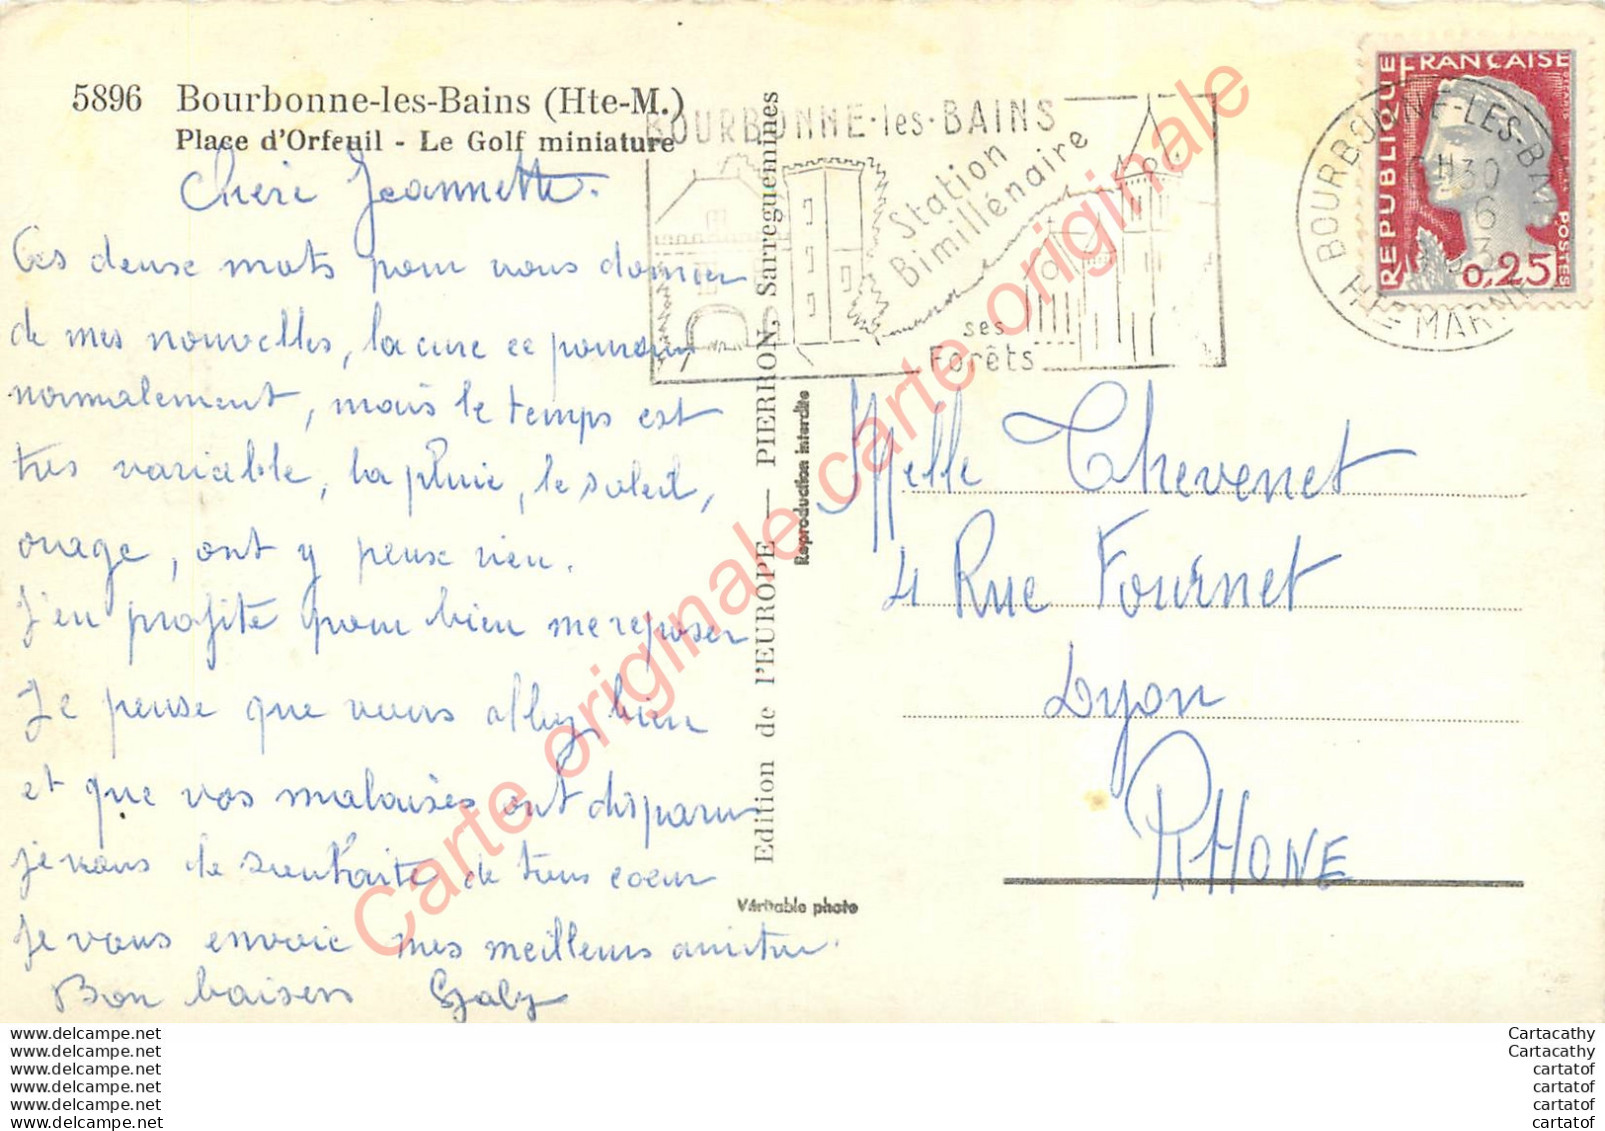 5896 Bourbonne-les-Bains (Hte-M.)
Place d'Orfeuil - Le Golf miniature
Chère Jeannette.
Ces deux mots pour vous donner
de mes nouvelles, la cure se poursuit
normalement, mais le temps est
très variable, la pluie, le soleil,
orage, ont y peux rien.
J'en profite pour bien me reposer
Je pense que vous allez bien
et que vos malaises ont disparu
je vous le souhaite de tous coeur
Je vous envoie mes meilleurs
Bon baisers Gaby
Edition de l'EUROPE — PIERRON, Sarreguemines
Reproduction interdite
Véritable photo
BOURBONNE-les-BAINS
Station
Bimillénaire
ses
Forêts
BOURBONNE-LES-BAINS
HTE MARNE
REPUBLIQUE FRANCAISE
POSTES
0,25
Melle Thevenet
4 Rue Fournet
Lyon
RHONE
Carte originale carte originale
www.delcampe.net
www.delcampe.net
www.delcampe.net
www.delcampe.net
www.delcampe.net
www.delcampe.net
Cartacathy
Cartacathy
cartatof
cartatof
cartatof
cartatof